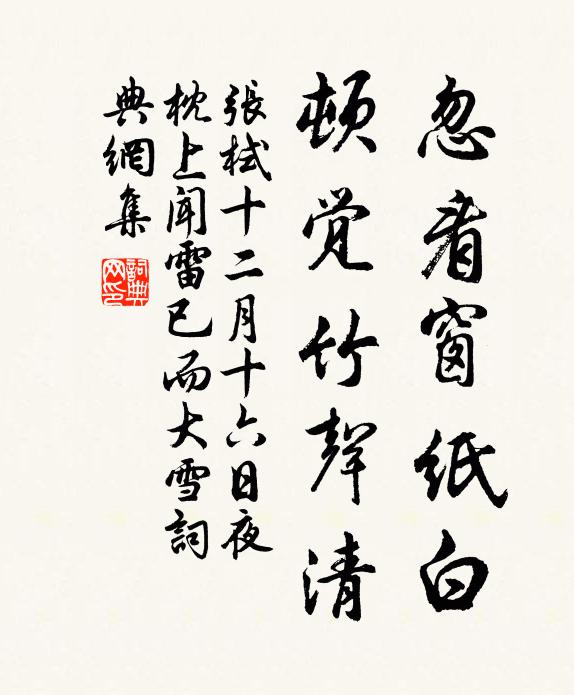 忽看窗紙白
頓觉竹聲清
張栻十二月十六日夜
枕上闻雷已而大雪詞
典網集
詞典
网印